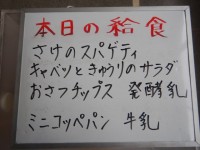 本日の給食
さけのスパゲティ
キャベツときゅうりのサラダ
おさつチップス 発酵乳
ミニコッペパン 牛乳